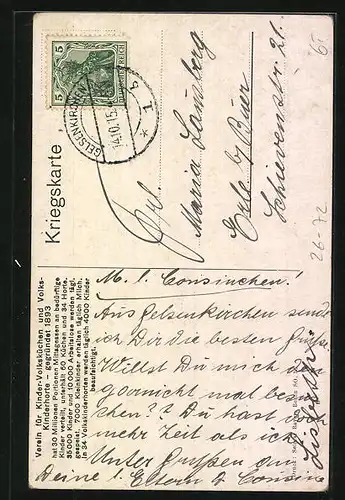 Kriegskarte
5 5
DEUTSCHES REICH
GELSENKIRCHEN
14.10.15.
* 1 b
Frl.
Maria Lamberg
Erle b/ Buer
Schievenstr. 21.
26-72
Verein für Kinder-Volksküchen und Volks-
Kinderhorte – gegründet 1893
hat 30 Millionen Portionen Mittagessen an bedürftige
Kinder verteilt, unterhält 60 Küchen und 34 Horte.
35 000 Kinder und 10 000 Arbeitslose werden tägl.
gespeist, 7000 Kleinkinder erhalten täglich Milch,
in 34 Volkskinderhorten werden täglich 4000 Kinder
beaufsichtigt.
M. l. Cousinchen!
Aus Gelsenkirchen sende
ich Dir die besten Grüße
Willst Du mich den
garnicht mal besu-
chen?? Du hast doch
mehr Zeit als ich.
Unter Grüßen an
Deine l. Eltern Cousine